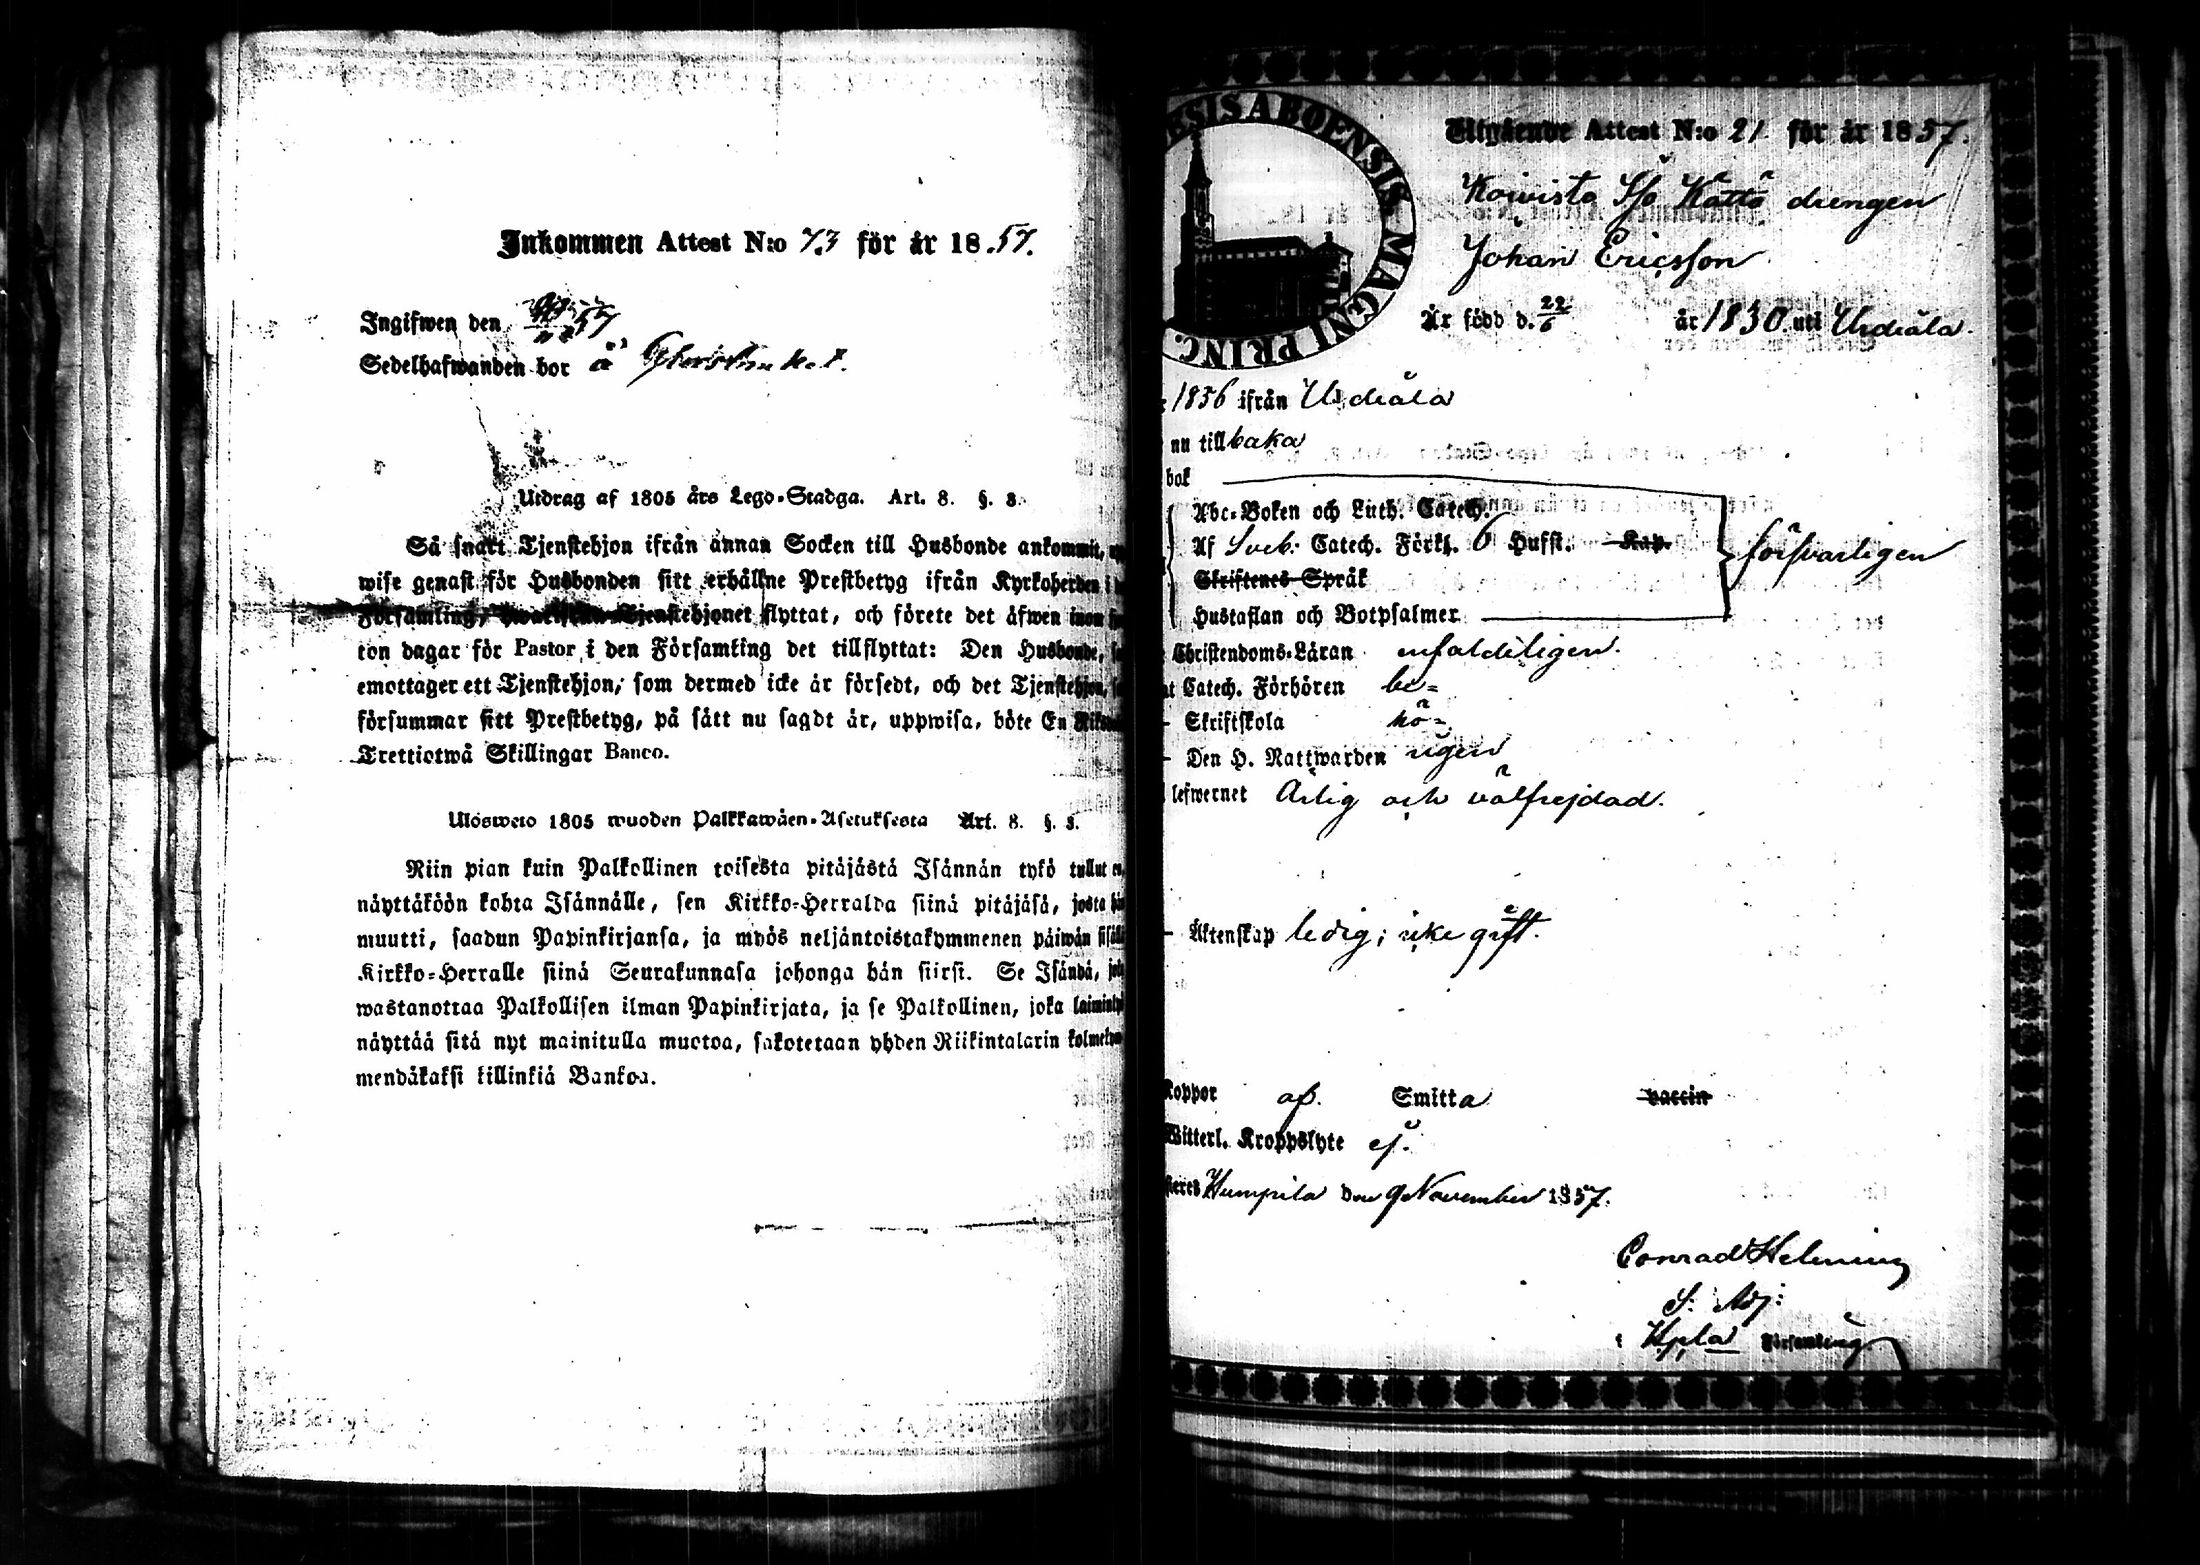 Inkommen Attest N:o 73 för år 1857.
Ingifwen den
Sedelhafwanden bor å
Utdrag af 1805 års Lego-Stadga. Art. 8. §. 8.
Så snart Tjenstehjon ifrån annan Socken till Husbonde ankommit,
wise genast för Husbonden sitt erhållne Prestbetyg ifrån Kyrkoherden i
Församling, Tjenstehjonet flyttat, och förete det äfwen inom
ton dagar för Pastor i den Församling det tillflyttat: Den Husbonde,
emottager ett Tjenstehjon, som dermed icke är försedt, och det Tjenstehjon,
försummar sitt Prestbetyg, på sätt nu sagdt är, uppwisa, böte En
Trettiotwå Skillingar Banco.
Ulosweto 1805 wuoden Palkkawäen-Asetuksesta Art. 8. §. 8.
Niin pian kuin Palkollinen toisesta pitäjästä Isännän tykö tullut
näyttäköön kohta Isännälle, sen Kirkko-Herralda siinä pitäjäsä, josta
muutti, saadun Papinkirjansa, ja myös neljäntoistakymmenen päiwän
Kirkko-Herralle siinä Seurakunnasa johonga hän siirsi. Se Isändä,
wastanottaa Palkollisen ilman Papinkirjata, ja se Palkollinen, joka
näyttää sitä nyt mainitulla muotoa, sakotetaan yhden Riikintalarin
mendäkaksi killinkiä Bankoa.
ESIS ABOENSIS MAGNI PRINC.
Utgående Attest N:o 21 för år 1857.
Koivisto Sjö Kättö drengen
Johan Ericsson
Är född d. 22/6 år 1830 uti Urdiala.
1856 ifrån Urdiala
nu tillbaka
bok
Abc-Boken och Luth. Catech.
Af Sveb. Catech. Förkl. 6 Hufst. Kap. försvarligen
Skriftenes Språk
Hustaflan och Botpsalmer
Christendoms-Läran enfaldeligen.
Catech. Förhören be=
Skriftskola hö=
Den H. Nattwarden rigen
lefwernet Ärlig och välfrejdad.
Äktenskap ledig; icke gift.
Koppor af. Smitta vaccin
Witterl. Kroppslyte ej.
Humpila den 9 November 1857.
Conrad Helming
S: Adj:
i Hpla Församling